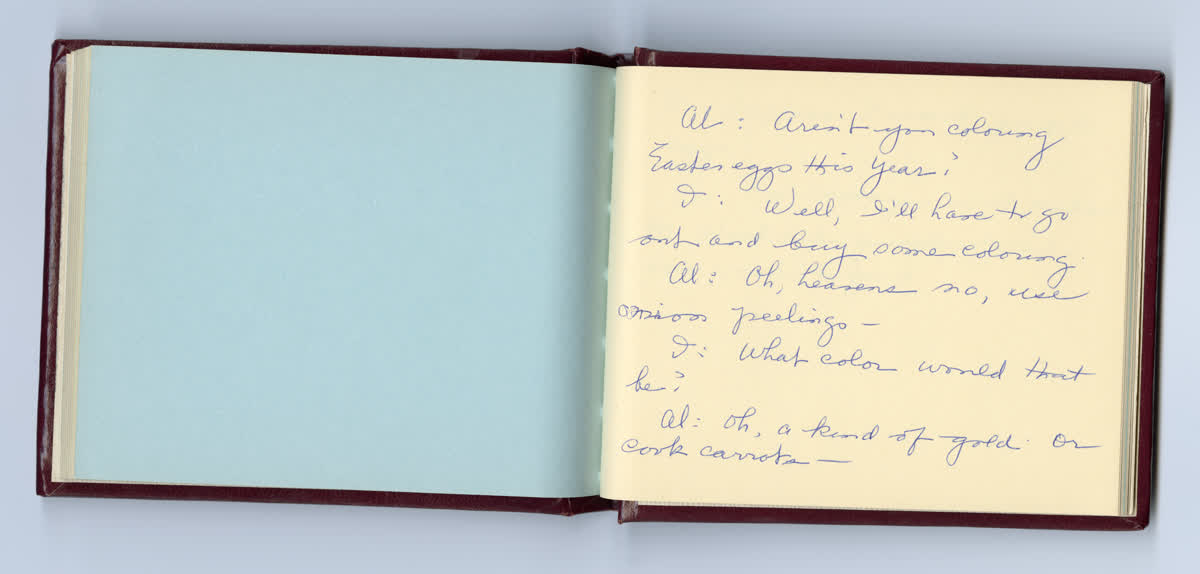 Al: Aren't you coloring
Easter eggs this year?
I: Well, I'll have to go
out and buy some coloring.
Al: Oh, heavens no, use
onion peelings —
I: What color would that
be?
Al: Oh, a kind of gold. Or
cook carrots —